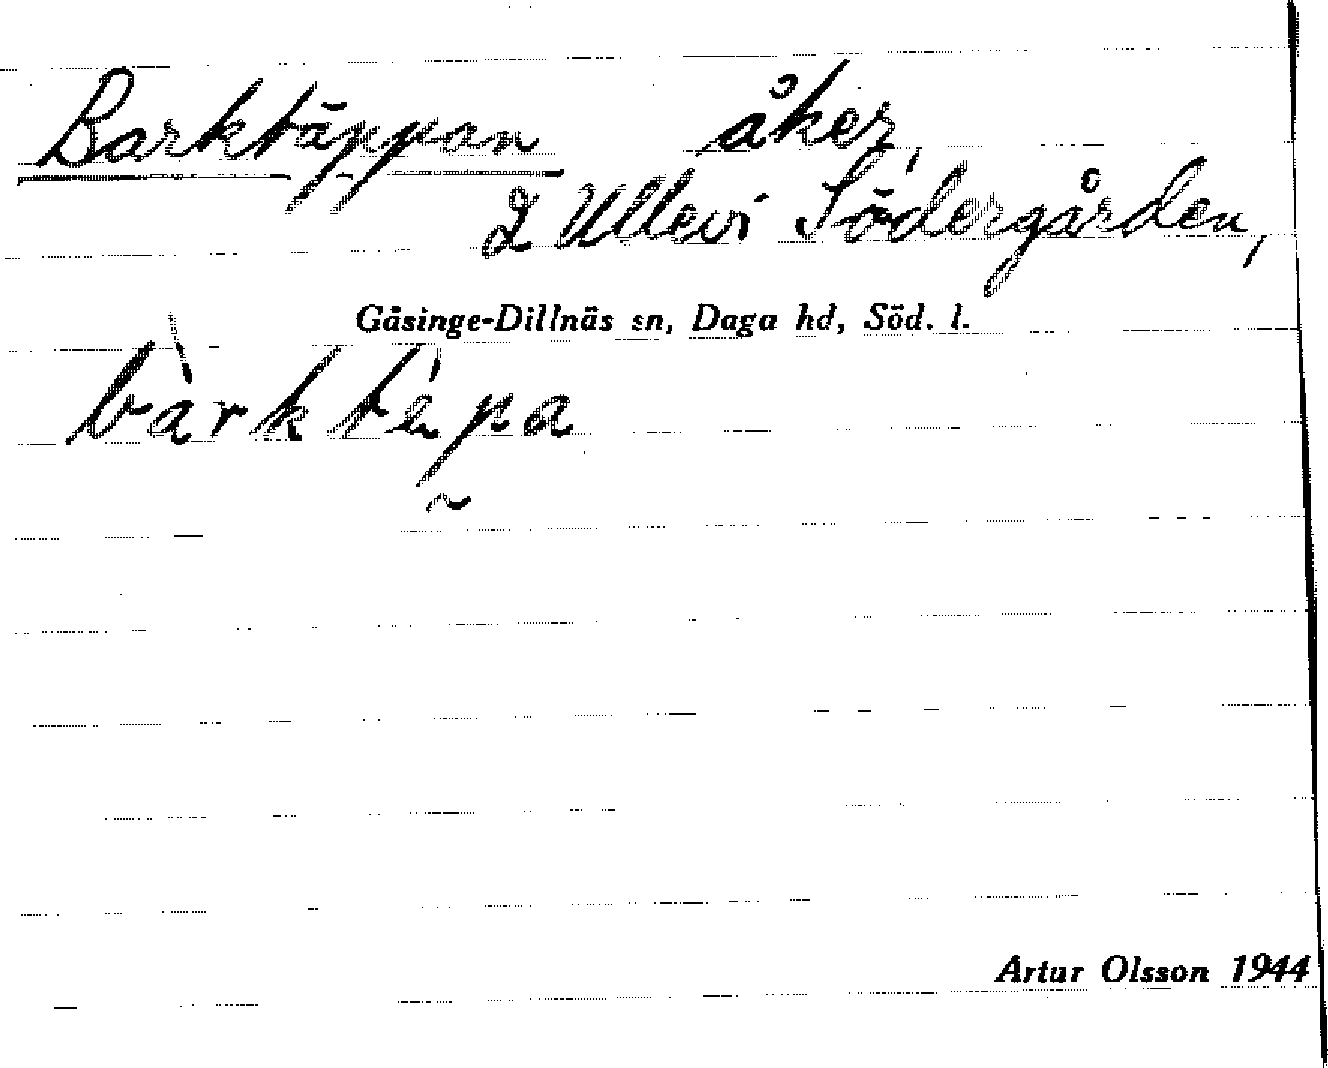 Barktäppan åker,
I Ullevi Södergården,
Gåsinge-Dillnäs sn, Daga hd, Söd. l.
bàrktépa
Artur Olsson 1944